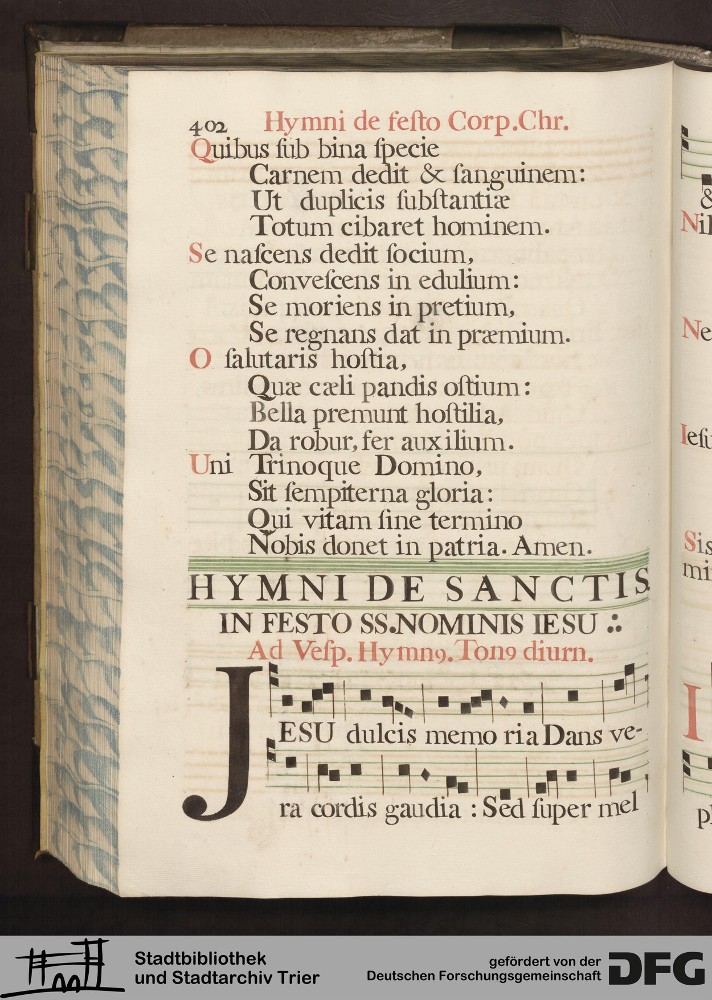 402 Hymni de feſto Corp.Chr.
Quibus ſub bina ſpecie
Carnem dedit & ſanguinem:
Ut duplicis ſubſtantiæ
Totum cibaret hominem.
Se naſcens dedit ſocium,
Conveſcens in edulium:
Se moriens in pretium,
Se regnans dat in præmium.
O ſalutaris hoſtia,
Quæ cæli pandis oſtium:
Bella premunt hoſtilia,
Da robur, fer auxilium.
Uni Trinoque Domino,
Sit ſempiterna gloria:
Qui vitam ſine termino
Nobis donet in patria. Amen.
HYMNI DE SANCTIS.
IN FESTO SS.NOMINIS IESU ∴
Ad Veſp. Hymnꝰ. Tonꝰ diurn.
JESU dulcis memo ria Dans ve-
ra cordis gaudia : Sed ſuper mel
&
Nil
Ne
Ieſu
Sis
mi
I
pl
Stadtbibliothek
und Stadtarchiv Trier
gefördert von der
Deutschen Forschungsgemeinschaft
DFG